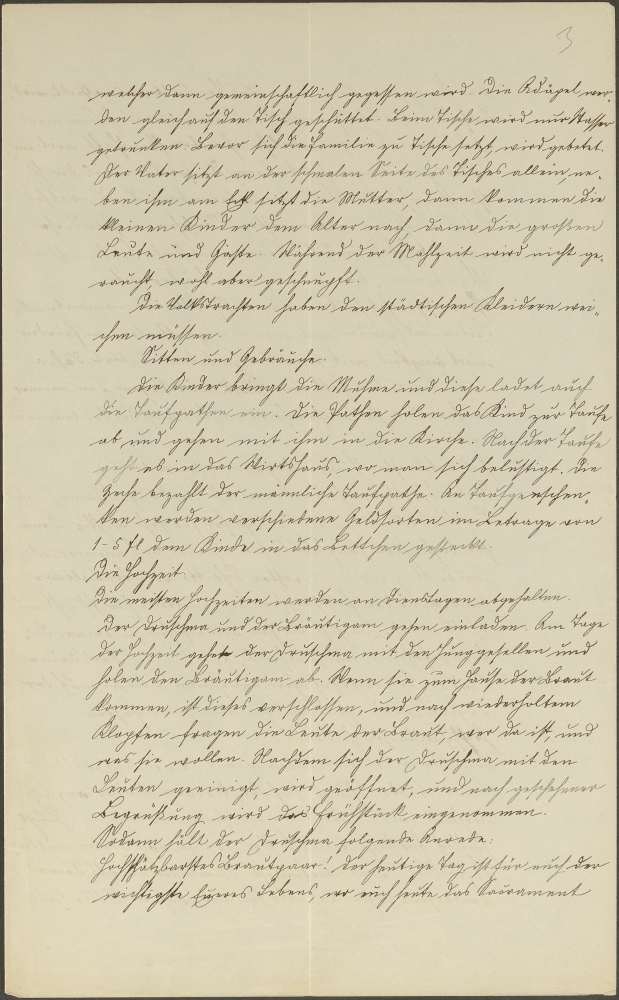 3
welcher dann gemeinschaftlich gegessen wird. Die Erdäpfel wer-
den gleich auf den Tisch geschüttet. Beim Tische wird nur Wasser
getrunken. Bevor sich die Familie zu Tische setzt, wird gebetet.
Der Vater sitzt an der schmalen Seite des Tisches allein, ne-
ben ihm am Eck sitzt die Mutter, dann kommen die
kleinen Kinder dem Alter nach, dann die großen
Leute und Gäste. Während der Mahlzeit wird nicht ge-
raucht, wohl aber geschnupft.
Die Volkstrachten haben den städtischen Kleidern wei-
chen müssen.
Sitten und Gebräuche.
Die Kinder bringt die Muhme und diese ladet auch
die Taufpathen ein. Die Pathen holen das Kind zur Taufe
ab, und gehen mit ihm in die Kirche. Nach der Taufe
geht es in das Wirtshaus, wo man sich belustigt. Die
Zeche bezahlt der männliche Taufpathe. An Taufgeschen-
ken werden verschiedene Geldsorten im Betrage von
1-5 fl dem Kinde in das Bettchen gesteckt.
Die Hochzeit.
Die meisten Hochzeiten werden an Dienstagen abgehalten.
Der Druschma und der Bräutigam gehen einladen. Am Tage
der Hochzeit gehet der Druschma mit den Junggesellen und
holen den Bräutigam ab. Wenn sie zum Hause der Braut
kommen, ist dieses verschlossen, und nach wiederholtem
Klopfen fragen die Leute der Braut, wer da ist, und
was sie wollen. Nachdem sich der Druschma mit den
Leuten geeinigt, wird geöffnet, und nach geschehener
Begrüßung wird das Frühstück eingenommen.
Sodann hält der Druschma folgende Anrede:
Hochschätzbarstes Brautpaar! Der heutige Tag ist für euch der
wichtigste Eueres Lebens, wo euch heute das Sacrament